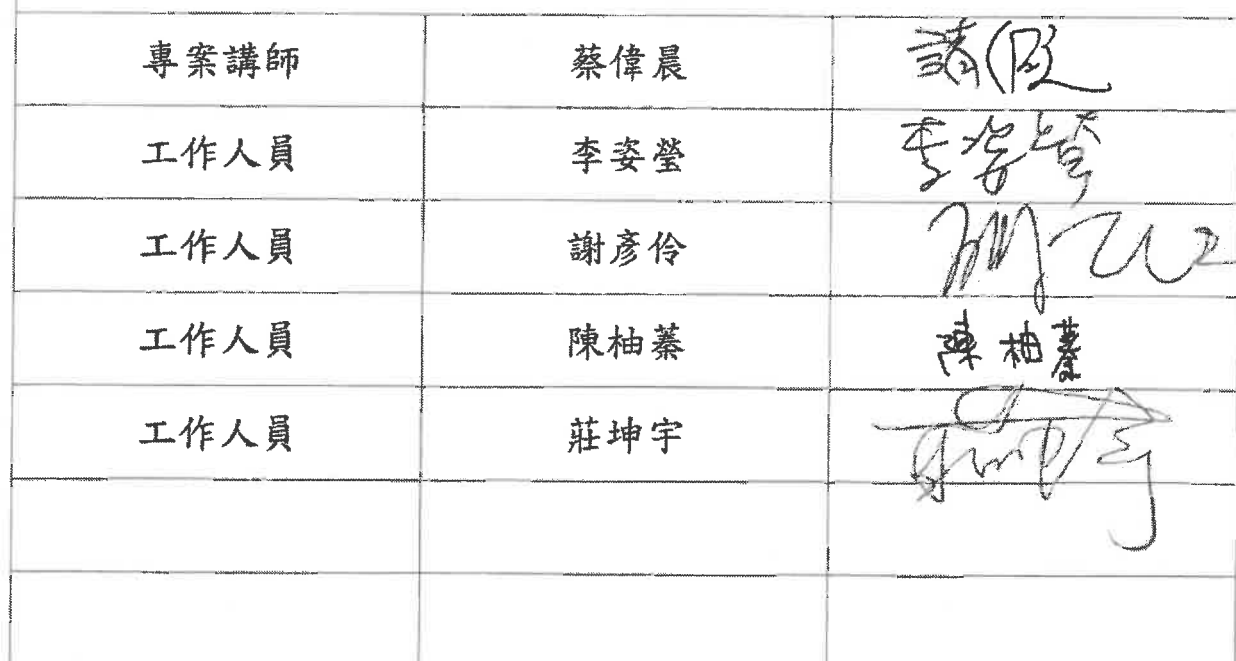 專案講師 蔡偉晨 請假
工作人員 李姿瑩 李姿瑩
工作人員 謝彥伶
工作人員 陳柚蓁 陳柚蓁
工作人員 莊坤宇